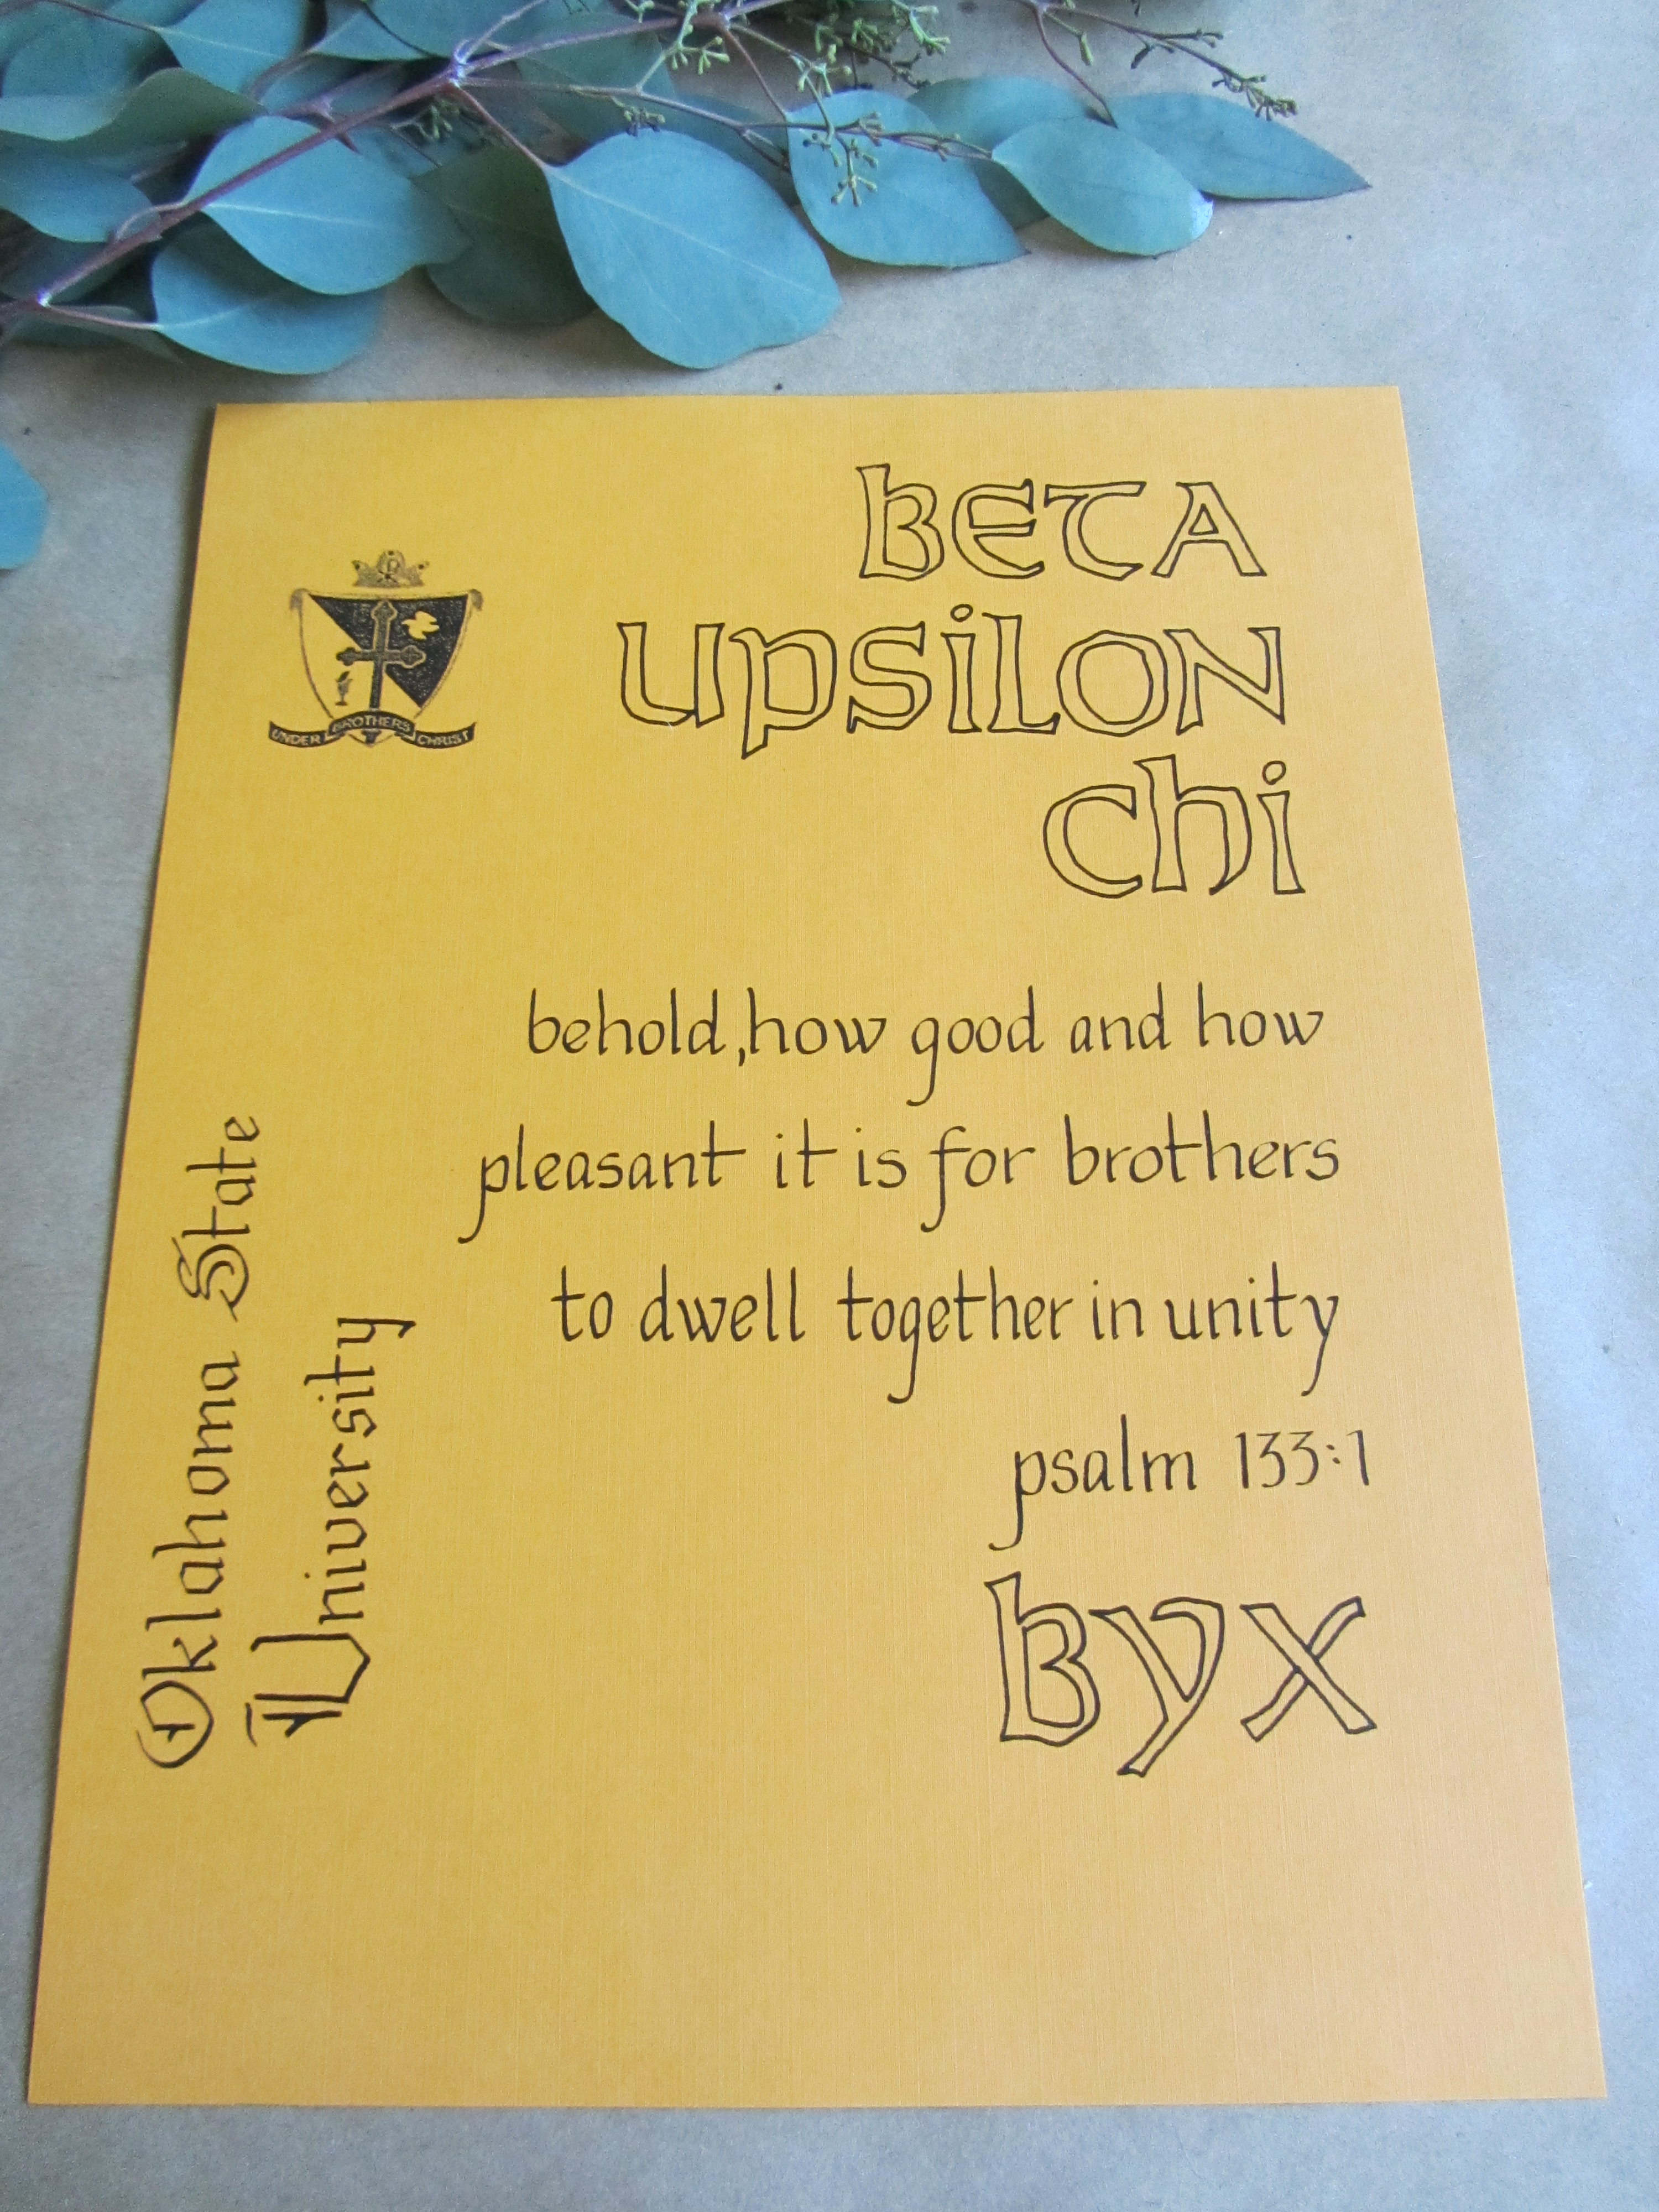 BETA
UPSILON
CHI
UNDER BROTHERS CHRIST
behold, how good and how
pleasant it is for brothers
to dwell together in unity
psalm 133:1
BYX
Oklahoma State
University